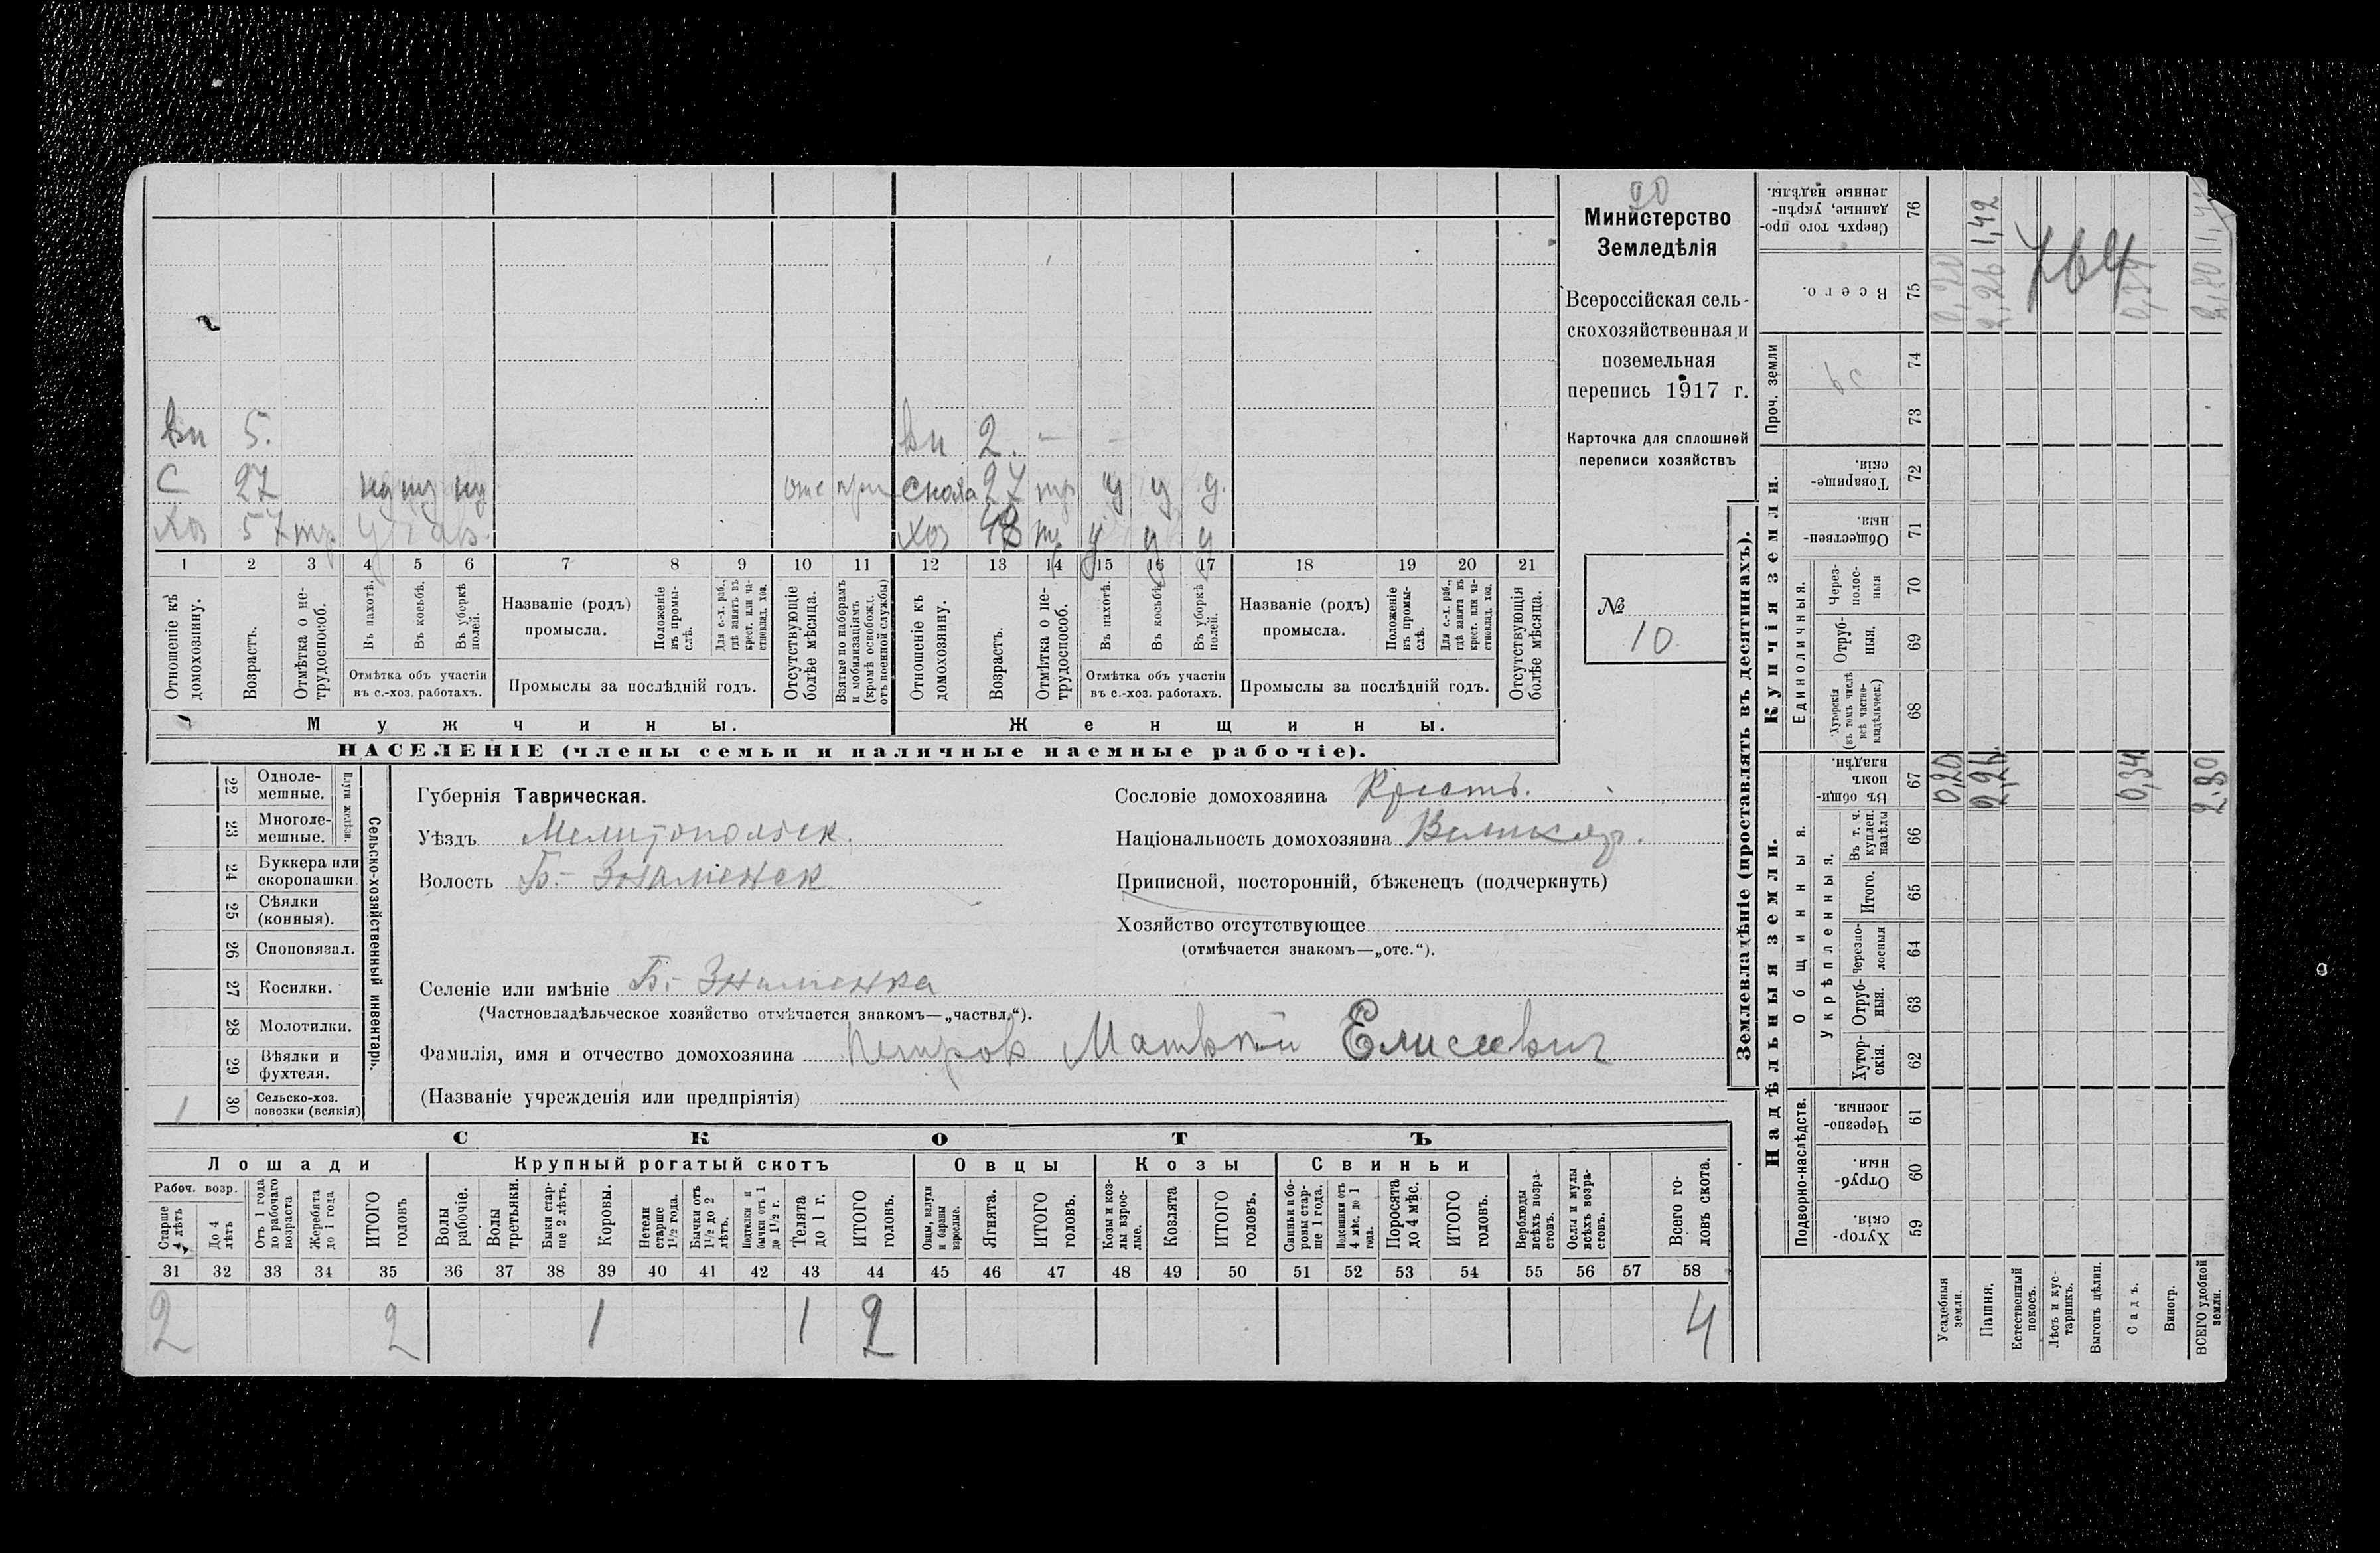 20
Министерство
Земледѣлія
Всероссійская сель-
скохозяйственная и
поземельная
перепись 1917 г.
Карточка для сплошной
переписи хозяйствъ
№
10
Вн 5. Вн 2. — —
С 27 ну ну ну отс сноха 27 тр у у у.
Хоз 57 тр Хоз 48 у у у
1 2 3 4 5 6 7 8 9 10 11 12 13 14 15 16 17 18 19 20 21
Отношеніе къ домохозяину.
Возрастъ.
Отмѣтка о не-трудоспособ.
Въ пахотѣ.
Въ косьбѣ.
Въ уборкѣ полей.
Отмѣтка объ участіи
въ с.-хоз. работахъ.
Названіе (родъ)
промысла.
Положеніе въ промы-слѣ.
Для с.-х. раб., гдѣ занятъ въ крест. или ча-стновлад. хоз.
Промыслы за послѣдній годъ.
Отсутствующіе болѣе мѣсяца.
Взятые по наборамъ и мобилизаціямъ (кромѣ освобожд. отъ военной службы)
Отношеніе къ домохозяину.
Возрастъ.
Отмѣтка о не-трудоспособ.
Въ пахотѣ.
Въ косьбѣ.
Въ уборкѣ полей.
Отмѣтка объ участіи
въ с.-хоз. работахъ.
Названіе (родъ)
промысла.
Положеніе въ промы-слѣ.
Для с.-х. раб., гдѣ занята въ крест. или ча-стновлад. хоз.
Промыслы за послѣдній годъ.
Отсутствующія болѣе мѣсяца.
Мужчины. Женщины.
НАСЕЛЕНІЕ (члены семьи и наличные наемные рабочіе).
22 Одноле-мешные.
23 Многоле-мешные.
Плуги желѣзн.
24 Буккера или скоропашки
25 Сѣялки (конныя).
26 Сноповязал.
27 Косилки.
28 Молотилки.
29 Вѣялки и фухтеля.
1 30 Сельско-хоз. повозки (всякія)
Сельско-хозяйственный инвентарь.
Губернія Таврическая.
Уѣздъ Мелитопольск.
Волость Б.- Знаменск
Селеніе или имѣніе Б.- Знаменка
(Частновладѣльческое хозяйство отмѣчается знакомъ—„частвл.“).
Фамилія, имя и отчество домохозяина Петров Матвей Елисеевич
(Названіе учрежденія или предпріятія)
Сословіе домохозяина Крестъ.
Національность домохозяина Великор.
Приписной, посторонній, бѣженецъ (подчеркнуть)
Хозяйство отсутствующее
(отмѣчается знакомъ—„отс.“).
СКОТЪ
Лошади Крупный рогатый скотъ Овцы Козы Свиньи
Рабоч. возр.
Старше 4 лѣтъ
До 4 лѣтъ
Отъ 1 года до рабочаго возраста
Жеребята до 1 года
ИТОГО головъ
Волы рабочіе.
Волы третьяки.
Быки стар-ше 2 лѣтъ.
Коровы.
Нетели старше 1½ года.
Бычки отъ 1½ до 2 лѣтъ.
Подтелки и бычки отъ 1 до 1½ г.
Телята до 1 г.
ИТОГО головъ.
Овцы, валухи и бараны взрослые.
Ягнята.
ИТОГО головъ.
Козы и коз-лы взрос-лые.
Козлята
ИТОГО головъ.
Свиньи и бо-ровы стар-ше 1 года.
Подсвинки отъ 4 мѣс. до 1 года.
Поросята до 4 мѣс.
ИТОГО головъ.
Верблюды всѣхъ возра-стовъ.
Ослы и мулы всѣхъ возра-стовъ.
Всего го-ловъ скота.
31 32 33 34 35 36 37 38 39 40 41 42 43 44 45 46 47 48 49 50 51 52 53 54 55 56 57 58
2 2 1 1 2 4
Землевладѣніе (проставлять въ десятинахъ).
Надѣльныя земли.
Купчія земли.
Проч. земли
Подворно-наслѣдств.
Общинныя.
Укрѣпленныя.
Единоличныя.
Сверхъ того про-данные, укрѣп-ленные надѣлы. 76
Всего. 75
74
73
Товарище-скія. 72
Обществен-ныя. 71
Через-полос-ныя 70
Отруб-ныя. 69
Хуторскія (въ томъ числѣ всѣ частно-владѣльческ.) 68
Въ общи-номъ владѣн. 67
Въ т. ч. куплен. надѣлы 66
Итого. 65
Черезпо-лосныя 64
Отруб-ныя. 63
Хутор-скія. 62
Черезпо-лосныя. 61
Отруб-ныя. 60
Хутор-скія. 59
Усадебныя земли. 0,20 0,20
Пашня. 2,26 2,26 1,42
Естественный покосъ.
Лѣсъ и кус-тарникъ.
Выгонъ цѣлин.
Садъ. 0,34 0,34
Виногр.
ВСЕГО удобной земли. 2.80 2,80
764